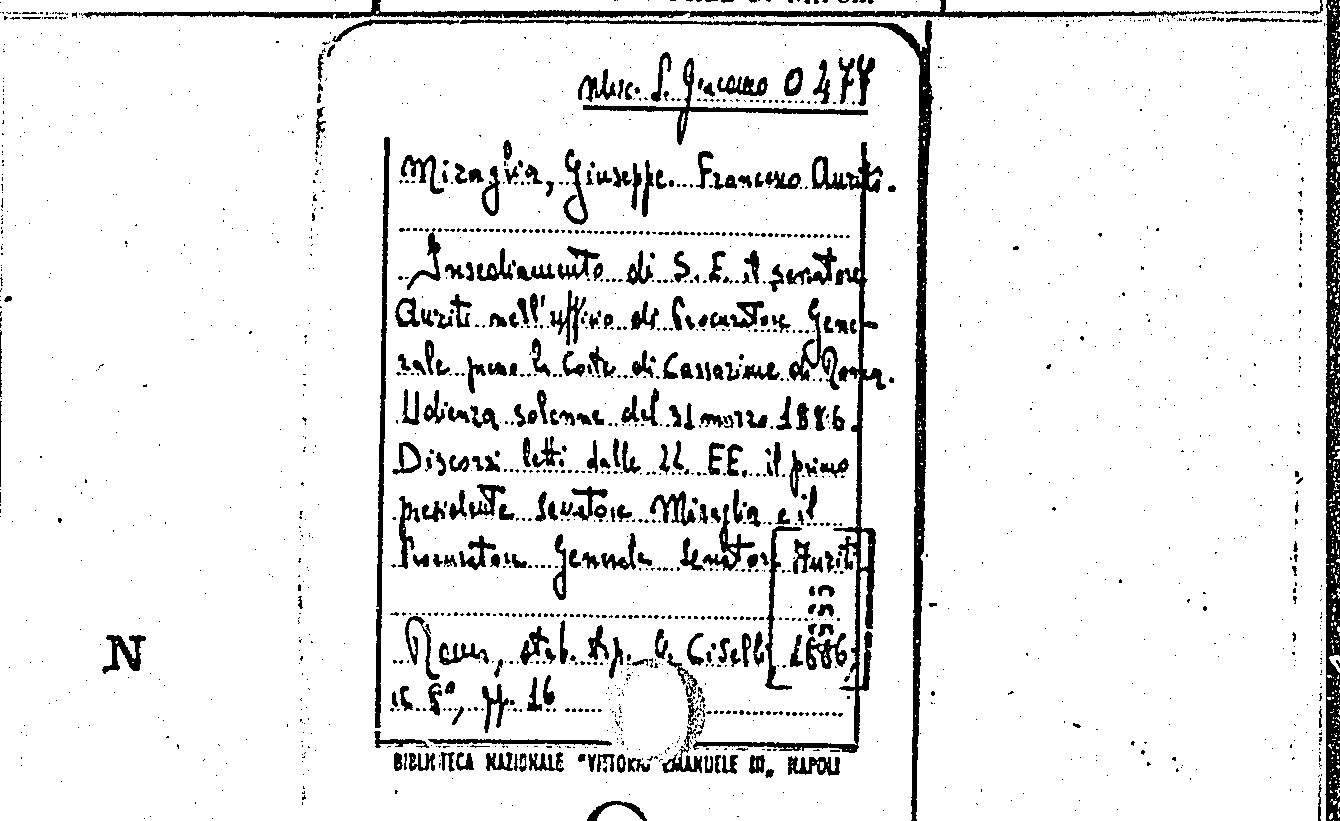 Misc. S. Giacomo O 474
Miraglia, Giuseppe. Francesco Auriti.
Insediamento di S. E. il senatore
Auriti nell'ufficio di Procuratore Gene-
rale presso la Corte di Cassazione di Roma.
Udienza solenne del 31 marzo 1886.
Discorsi letti dalle LL. EE. il primo
presidente senatore Miraglia e il
Procuratore Generale senatore Auriti
Roma, stab. tip. Ciselli 1886;
in 8°, pp. 16
BIBLIOTECA NAZIONALE "VITTORIO EMANUELE III„ NAPOLI
N